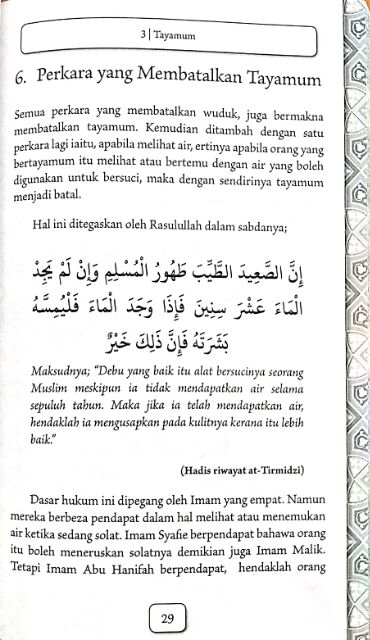 3 | Tayamum
6. Perkara yang Membatalkan Tayamum
Semua perkara yang membatalkan wuduk, juga bermakna
membatalkan tayamum. Kemudian ditambah dengan satu
perkara lagi iaitu, apabila melihat air, ertinya apabila orang yang
bertayamum itu melihat atau bertemu dengan air yang boleh
digunakan untuk bersuci, maka dengan sendirinya tayamum
menjadi batal.
Hal ini ditegaskan oleh Rasulullah dalam sabdanya;
إِنَّ الصَّعِيدَ الطَّيِّبَ طَهُورُ الْمُسْلِمِ وَإِنْ لَمْ يَجِدْ
الْمَاءَ عَشْرَ سِنِينَ فَإِذَا وَجَدَ الْمَاءَ فَلْيُمِسَّهُ
بَشَرَتَهُ فَإِنَّ ذَلِكَ خَيْرٌ
Maksudnya; "Debu yang baik itu alat bersucinya seorang
Muslim meskipun ia tidak mendapatkan air selama
sepuluh tahun. Maka jika ia telah mendapatkan air,
hendaklah ia mengusapkan pada kulitnya kerana itu lebih
baik."
(Hadis riwayat at-Tirmidzi)
Dasar hukum ini dipegang oleh Imam yang empat. Namun
mereka berbeza pendapat dalam hal melihat atau menemukan
air ketika sedang solat. Imam Syafie berpendapat bahawa orang
itu boleh meneruskan solatnya demikian juga Imam Malik.
Tetapi Imam Abu Hanifah berpendapat, hendaklah orang
29